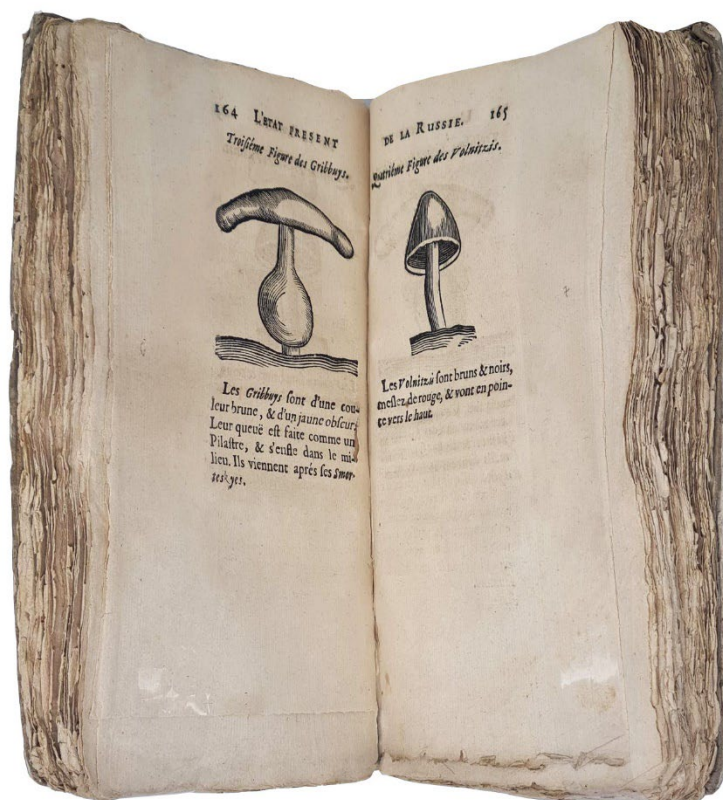 164 L'ETAT PRESENT
Troisiéme Figure des Gribbuys.
Les Gribbuys sont d'une cou-
leur brune, & d'un jaune obscur;
Leur queuë est faite comme un
Pilastre, & s'enfle dans le mi-
lieu. Ils viennent aprés ses Smor-
teskyes.
DE LA RUSSIE. 165
Quatriéme Figure des Volnitzis.
Les Volnitzis sont bruns & noirs,
meslez de rouge, & vont en poin-
te vers le haut.